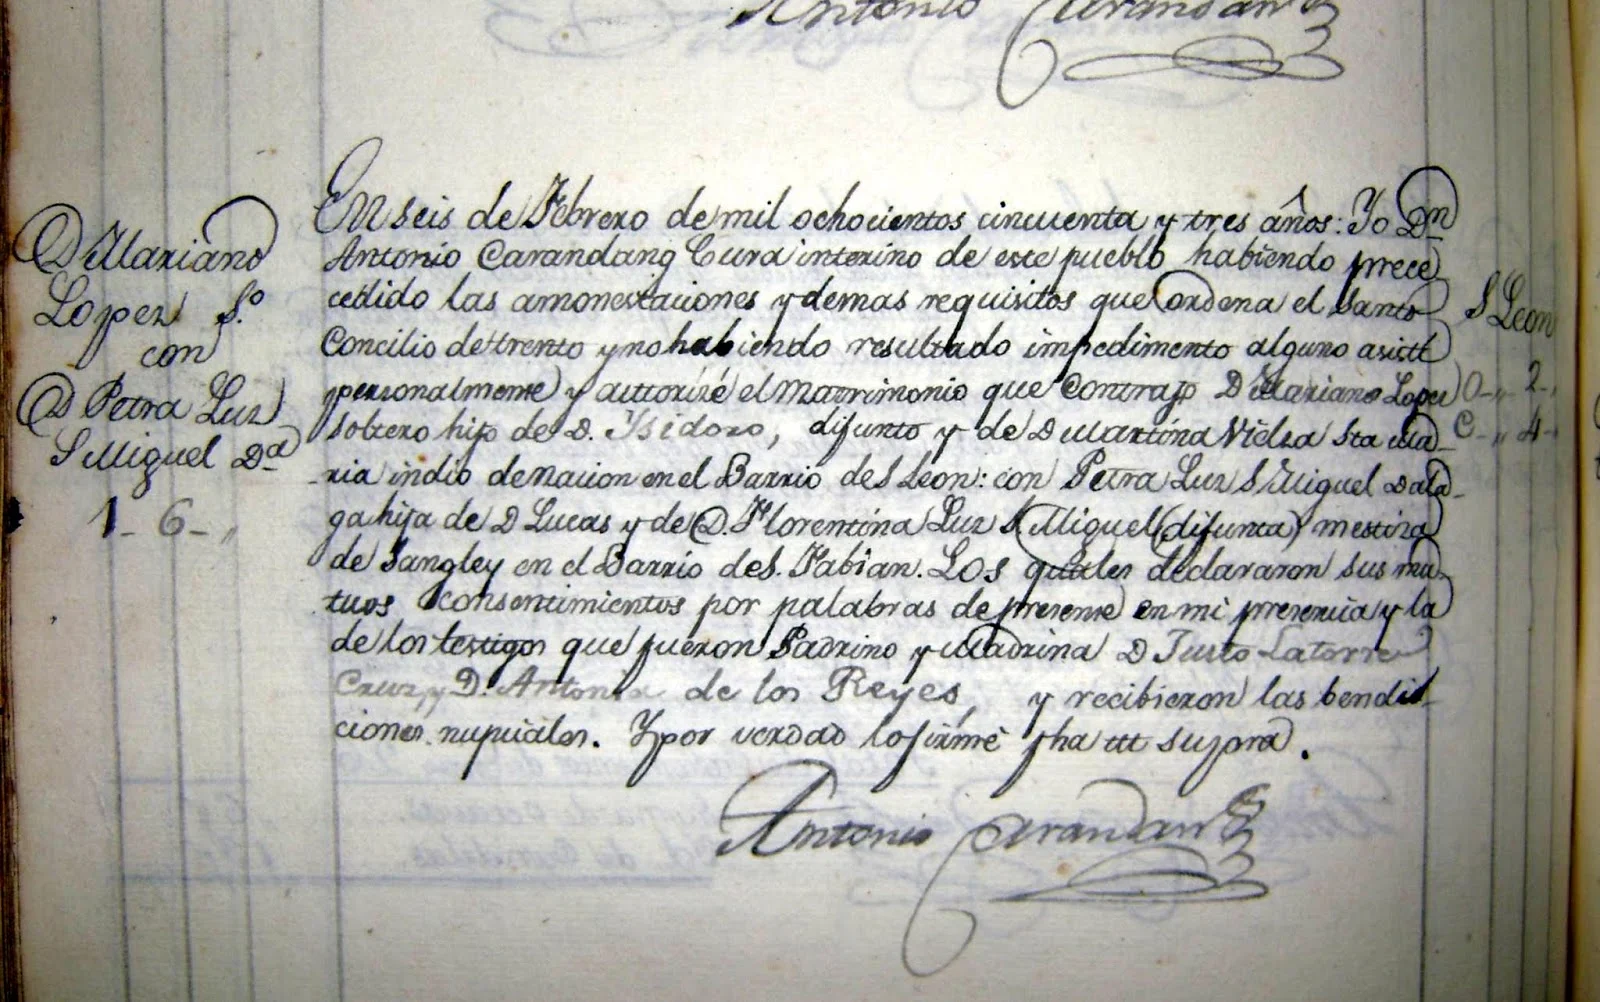 Antonio Carandang
D Mariano
Lopez S.o
con
D Petra Luz
S Miguel Da
1 - 6 - „
En seis de Febrero de mil ochocientos cincuenta y tres años: Yo Dn
Antonio Carandang Cura interino de este pueblo habiendo prece
cedido las amonestaciones y demas requisitos que ordena el Santo
Concilio de trento y no habiendo resultado impedimento alguno asistí
personalmente y autorizé el Matrimonio que Contrajo D Mariano Lopez
Soltero hijo de D. Isidoro, difunto y de D Martina Vielza Sta Ma-
ria indio de nacion en el Barrio de S Leon: con Petra Luz S Miguel Dala-
ga hija de D Lucas y de D. Florentina Luz S Miguel (difunta) mestiza
de Sangley en el Barrio de S. Fabian. Los quales declararon sus mu-
tuos consentimientos por palabras de presente en mi presencia y la
de los testigos que fueron Padrino y Madrina D Justo Latorre
Cruz, y D. Antonia de los Reyes, y recibieron las bendi-
ciones nupciales. Y por verdad lo firmé fha ut supra.
Antonio Carandang
S Leon
O - „ 2 - „
C - „ 4 -